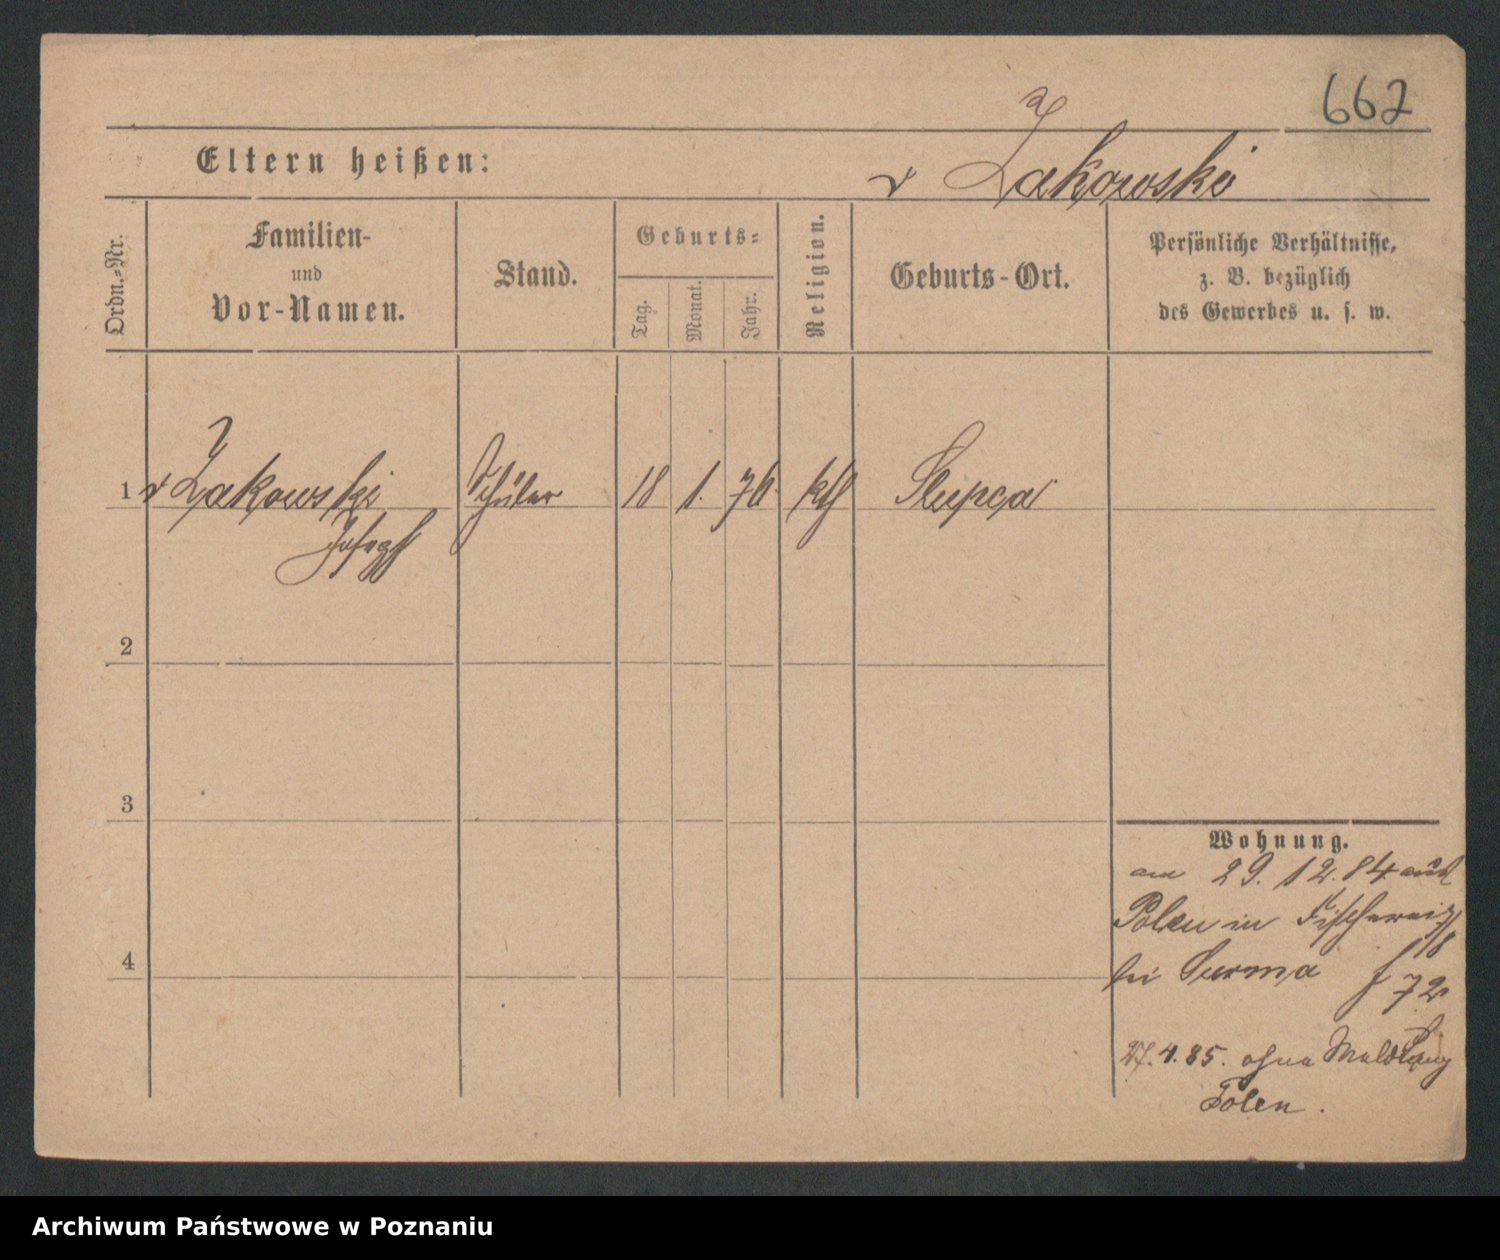 662
Eltern heißen:
v Zakowski
Ordn.=Nr.
Familien-
und
Vor-Namen.
Stand.
Geburts=
Tag.
Monat.
Jahr.
Religion.
Geburts-Ort.
Persönliche Verhältnisse,
z. B. bezüglich
des Gewerbes u. s. w.
1 v Zakowski Schüler 18 1. 76. kth Slupca
Joseph
2
3
4
Wohnung.
am 29. 12. 84 aus
Polen in Fischerei
18
bei Surma f 72
4. 85. ohne Meldung
Polen.
Archiwum Państwowe w Poznaniu